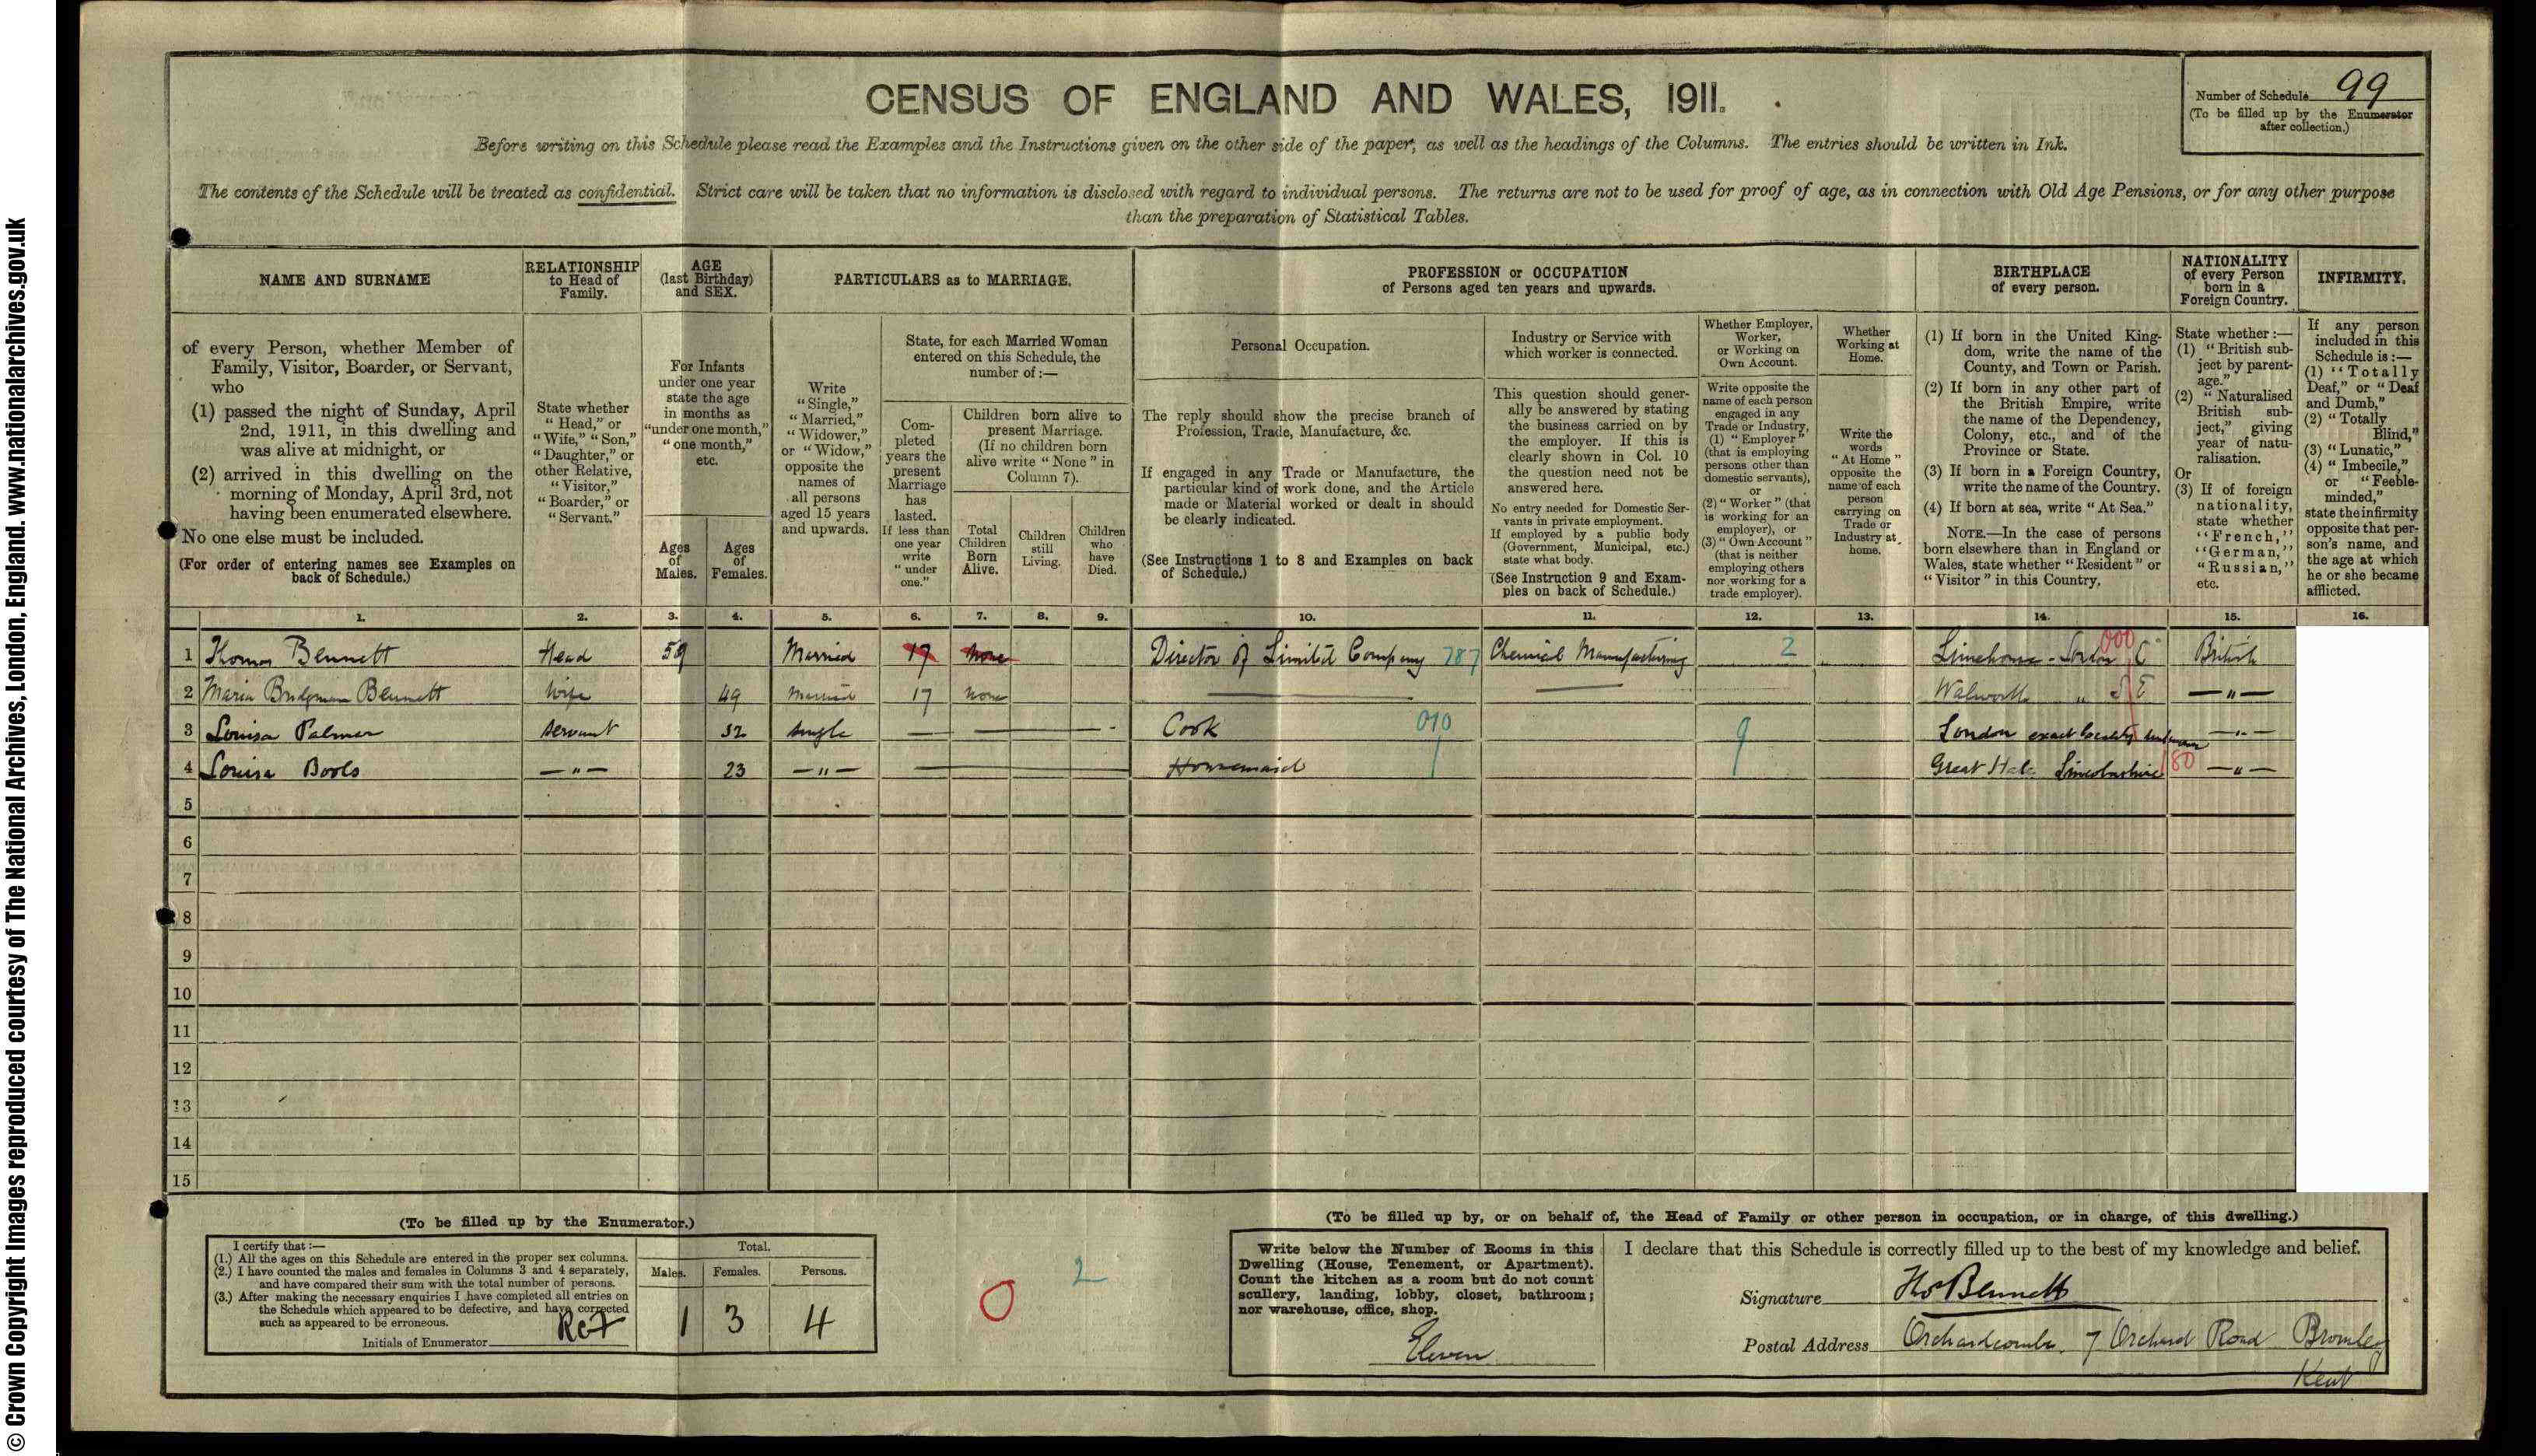 © Crown Copyright Images reproduced courtesy of The National Archives, London, England. www.nationalarchives.gov.uk
CENSUS OF ENGLAND AND WALES, 1911.
Number of Schedule 99
(To be filled up by the Enumerator after collection.)
Before writing on this Schedule please read the Examples and the Instructions given on the other side of the paper, as well as the headings of the Columns. The entries should be written in Ink.
The contents of the Schedule will be treated as confidential. Strict care will be taken that no information is disclosed with regard to individual persons. The returns are not to be used for proof of age, as in connection with Old Age Pensions, or for any other purpose
than the preparation of Statistical Tables.
NAME AND SURNAME
of every Person, whether Member of
Family, Visitor, Boarder, or Servant,
who
(1) passed the night of Sunday, April
2nd, 1911, in this dwelling and
was alive at midnight, or
(2) arrived in this dwelling on the
morning of Monday, April 3rd, not
having been enumerated elsewhere.
No one else must be included.
(For order of entering names see Examples on
back of Schedule.)
RELATIONSHIP
to Head of
Family.
State whether
"Head," or
"Wife," "Son,"
"Daughter," or
other Relative,
"Visitor,"
"Boarder," or
"Servant."
AGE
(last Birthday)
and SEX.
For Infants
under one year
state the age
in months as
"under one month,"
"one month,"
etc.
Ages
of
Males.
Ages
of
Females.
PARTICULARS as to MARRIAGE.
Write
"Single,"
"Married,"
"Widower,"
or "Widow,"
opposite the
names of
all persons
aged 15 years
and upwards.
State, for each Married Woman
entered on this Schedule, the
number of :—
Com-
pleted
years the
present
Marriage
has
lasted.
If less than
one year
write
"under
one."
Children born alive to
present Marriage.
(If no children born
alive write "None" in
Column 7).
Total
Children
Born
Alive.
Children
still
Living.
Children
who
have
Died.
PROFESSION or OCCUPATION
of Persons aged ten years and upwards.
Personal Occupation.
The reply should show the precise branch of
Profession, Trade, Manufacture, &c.
If engaged in any Trade or Manufacture, the
particular kind of work done, and the Article
made or Material worked or dealt in should
be clearly indicated.
(See Instructions 1 to 8 and Examples on back
of Schedule.)
Industry or Service with
which worker is connected.
This question should gener-
ally be answered by stating
the business carried on by
the employer. If this is
clearly shown in Col. 10
the question need not be
answered here.
No entry needed for Domestic Ser-
vants in private employment.
If employed by a public body
(Government, Municipal, etc.)
state what body.
(See Instruction 9 and Exam-
ples on back of Schedule.)
Whether Employer,
Worker,
or Working on
Own Account.
Write opposite the
name of each person
engaged in any
Trade or Industry,
(1) "Employer"
(that is employing
persons other than
domestic servants),
or
(2) "Worker" (that
is working for an
employer), or
(3) "Own Account"
(that is neither
employing others
nor working for a
trade employer).
Whether
Working at
Home.
Write the
words
"At Home"
opposite the
name of each
person
carrying on
Trade or
Industry at
home.
BIRTHPLACE
of every person.
(1) If born in the United King-
dom, write the name of the
County, and Town or Parish.
(2) If born in any other part of
the British Empire, write
the name of the Dependency,
Colony, etc., and of the
Province or State.
(3) If born in a Foreign Country,
write the name of the Country.
(4) If born at sea, write "At Sea."
NOTE.—In the case of persons
born elsewhere than in England or
Wales, state whether "Resident" or
"Visitor" in this Country.
NATIONALITY
of every Person
born in a
Foreign Country.
State whether :—
(1) "British sub-
ject by parent-
age."
(2) "Naturalised
British sub-
ject," giving
year of natu-
ralisation.
Or
(3) If of foreign
nationality,
state whether
"French,"
"German,"
"Russian,"
etc.
INFIRMITY.
If any person
included in this
Schedule is :—
(1) "Totally
Deaf," or "Deaf
and Dumb,"
(2) "Totally
Blind,"
(3) "Lunatic,"
(4) "Imbecile,"
or "Feeble-
minded,"
state the infirmity
opposite that per-
son's name, and
the age at which
he or she became
afflicted.
1. 2. 3. 4. 5. 6. 7. 8. 9. 10. 11. 12. 13. 14. 15. 16.
1 Thomas Bennett Head 59 Married 17 None Director of Limited Company 787 Chemical Manufacturing 2 Limehouse - London E 000 British
2 Maria Bridgman Bennett Wife 49 Married 17 None — — Walworth " S E — " —
3 Louisa Palmer Servant 32 Single — — — Cook 010 9 London exact locality unknown — " —
4 Louisa Bools — " — 23 — " — — Housemaid 9 Great Hale Lincolnshire 180 — " —
5
6
7
8
9
10
11
12
13
14
15
(To be filled up by the Enumerator.)
I certify that :—
(1.) All the ages on this Schedule are entered in the proper sex columns.
(2.) I have counted the males and females in Columns 3 and 4 separately,
and have compared their sum with the total number of persons.
(3.) After making the necessary enquiries I have completed all entries on
the Schedule which appeared to be defective, and have corrected
such as appeared to be erroneous.
Initials of Enumerator
Total.
Males. Females. Persons.
1 3 4
0 2
(To be filled up by, or on behalf of, the Head of Family or other person in occupation, or in charge, of this dwelling.)
Write below the Number of Rooms in this
Dwelling (House, Tenement, or Apartment).
Count the kitchen as a room but do not count
scullery, landing, lobby, closet, bathroom;
nor warehouse, office, shop.
Eleven
I declare that this Schedule is correctly filled up to the best of my knowledge and belief.
Signature Thos Bennett
Postal Address Orchardcombe, 7 Orchard Road Bromley
Kent